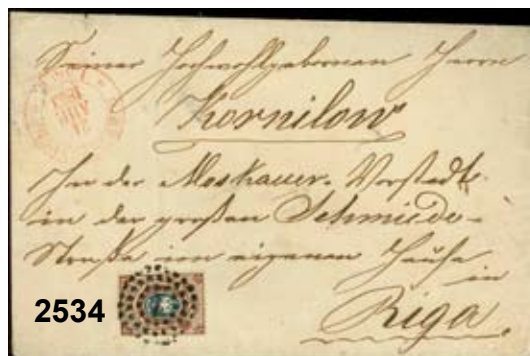 Seiner Hochwohlgebornen Herrn
Kornilow
In der Moskauer Vorstadt
in der großen Schmiede-
Straße im eigenen Hause
in
Riga.
2534